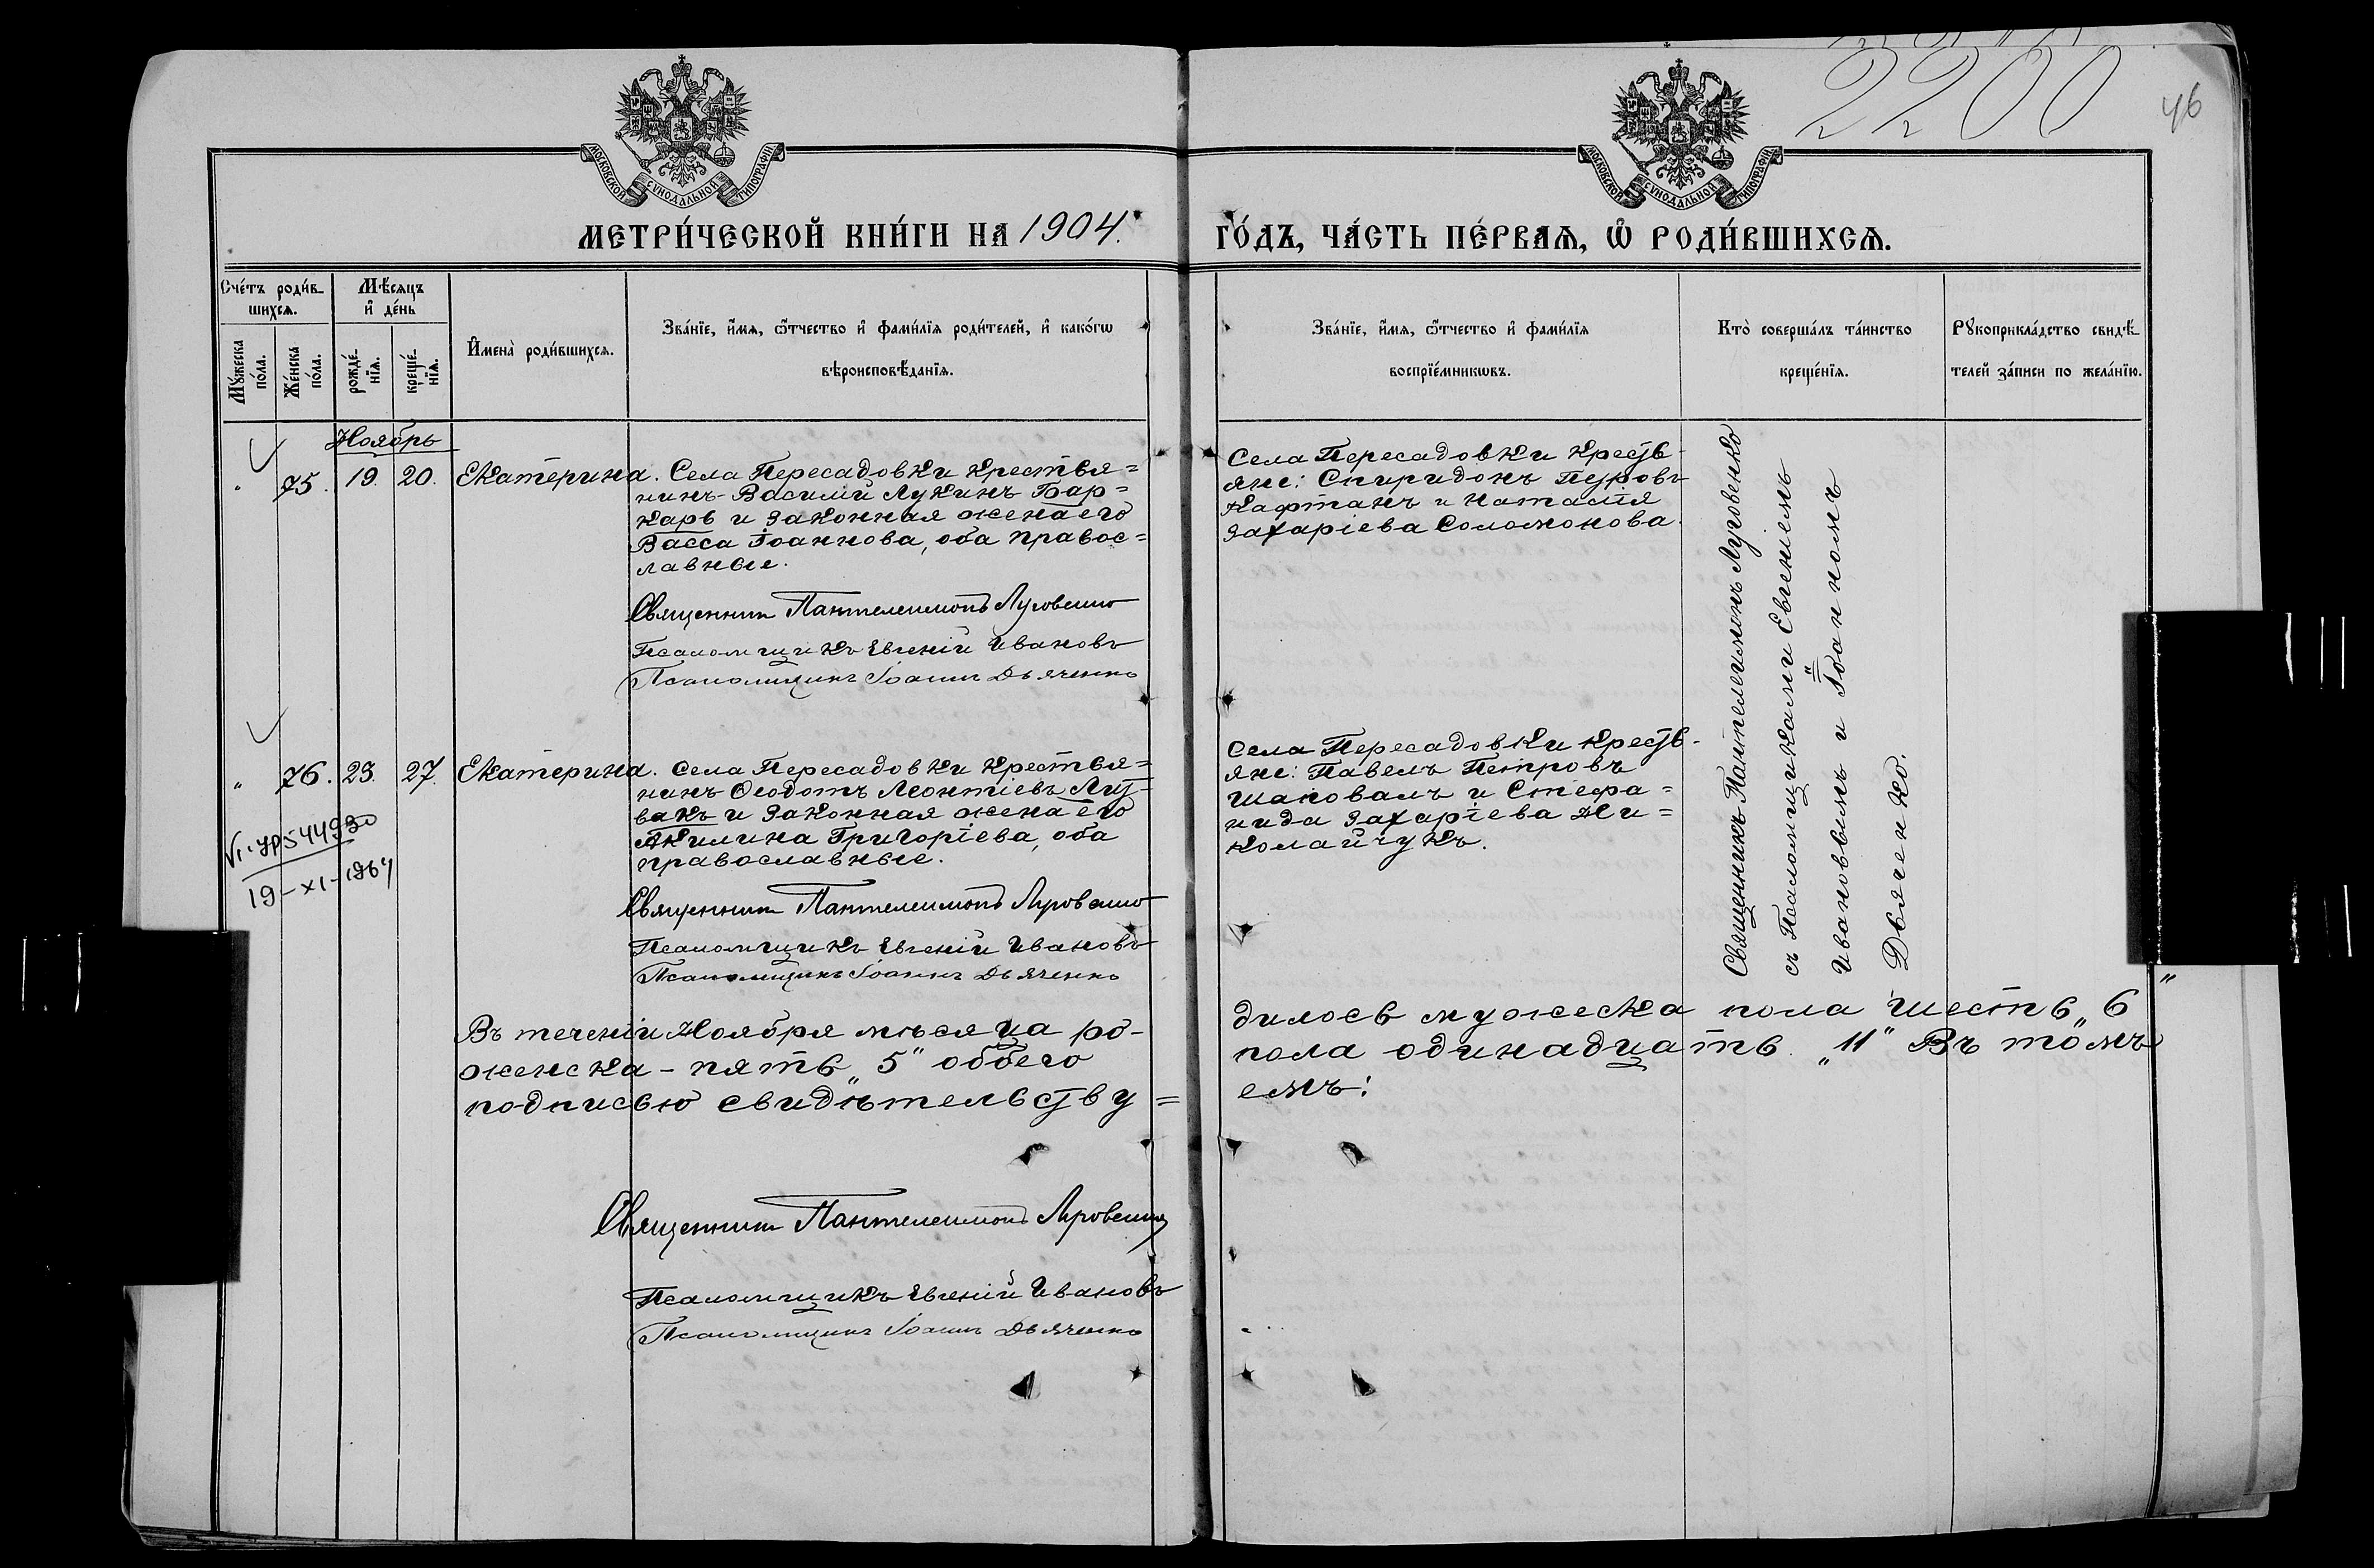 2200
46
МОСКОВСКОЙ СѴНОДАЛЬНОЙ ТИПОГРАФІИ
МОСКОВСКОЙ СѴНОДАЛЬНОЙ ТИПОГРАФІИ
МЕТРИ́ЧЕСКОЙ КНИ́ГИ НА 1904. ГО́ДЪ, ЧА́СТЬ ПЕ́РВАЯ, Ѽ РОДИ́ВШИХСЯ.
Сче́тъ роди́в-
шихся.
Мѣ́сяцъ
и҆ де́нь
Мꙋ́жеска
по́ла.
Же́нска
по́ла.
рожде́-
нїя.
креще́-
нїя.
И҆мена̀ роди́вшихся.
Зва́нїе, и҆́мя, ѻ҆́тчество и҆ фами́лїя роди́телей, и҆ како́гѡ
вѣроисповѣ́данїя.
Зва́нїе, и҆́мя, ѻ҆́тчество и҆ фами́лїя
воспрїе́мникѡвъ.
Кто̀ соверша́лъ та́инство
креще́нїя.
Рꙋкоприкла́дство свидѣ́-
телей за́писи по жела́нїю.
Ноябрь
" 75. 19. 20. Екатерина.
Села Пересадовки крестья=
нинъ Василій Лукинъ Бар=
карь и законная жена его
Васса Іоаннова, оба правос=
лавные.
Священник Пантелеимонъ Луговенко
Псаломщикъ Евгеній Ивановъ
Псаломщикъ Іоаннъ Дьяченко
Села Пересадовки кресть-
яне: Спиридонъ Петровъ
Кафтанъ и Наталія
Захаріева Соломонова.
Священникъ Пантелеимонъ Луговенко
съ Псаломщиками Евгеніемъ
Ивановымъ и Іоанномъ
Дьяченко.
" 76. 23. 27. Екатерина.
Села Пересадовки крестья=
нинъ Ѳеодотъ Леонтіевъ
и законная жена его
Акилина Григоріева, оба
православные.
Священник Пантелеимонъ Луговенко
Псаломщикъ Евгеній Ивановъ
Псаломщикъ Іоаннъ Дьяченко
Села Пересадовки кресть-
яне: Павелъ Петровъ
Шаповалъ и Стефа=
нида Захаріева Ни=
колайчукъ.
19-XI-1964
Въ теченіи Ноября мѣсяца ро-
дилось мужеска пола шесть „6"
женска - пять „5" обоего
пола одинадцать „11" Въ томъ
подписью свидѣтельству=
емъ:
Священник Пантелеимонъ Луговенко
Псаломщикъ Евгеній Ивановъ
Псаломщикъ Іоаннъ Дьяченко